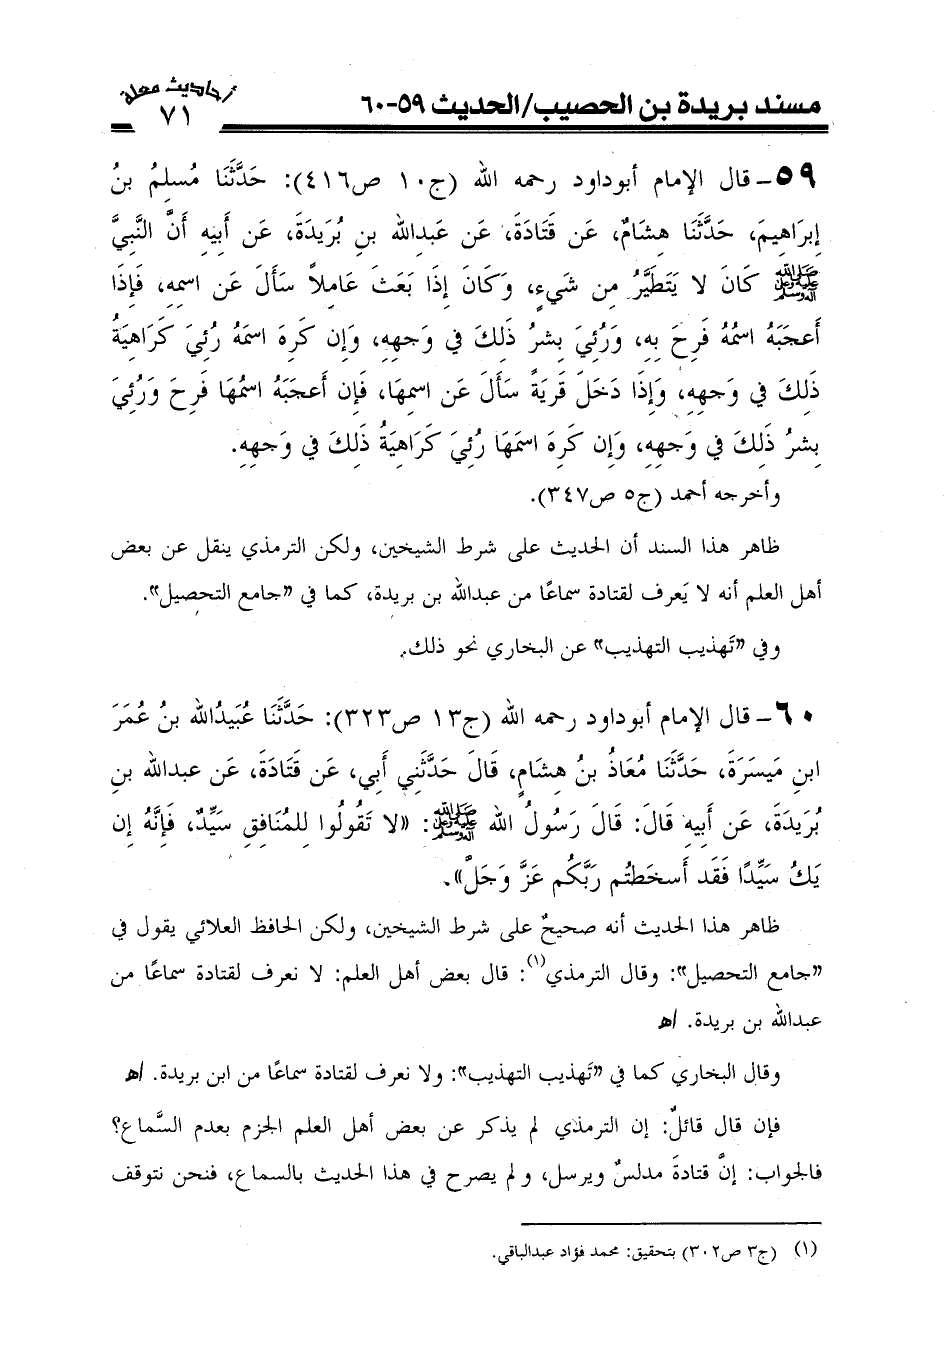 مسند بريدة بن الحصيب/الحديث ٥٩-٦٠
أحاديث معلة
٧١
٥٩- قال الإمام أبوداود رحمه الله (ج١٠ ص٤١٦): حَدَّثَنَا مُسلِمُ بنُ
إبرَاهِيمَ، حَدَّثَنَا هِشَامٌ، عَن قَتَادَةَ، عَن عَبدِالله بنِ بُرَيدَةَ، عَن أَبِيهِ أَنَّ النَّبِيَّ
ﷺ كَانَ لا يَتَطَيَّرُ مِن شَيءٍ، وَكَانَ إِذَا بَعَثَ عَامِلاً سَأَلَ عَن اسمِهِ، فَإِذَا
أَعجَبَهُ اسمُهُ فَرِحَ بِهِ، وَرُئِيَ بِشرُ ذَلِكَ فِي وَجهِهِ، وَإِن كَرِهَ اسمَهُ رُئِيَ كَرَاهِيَةُ
ذَلِكَ فِي وَجهِهِ، وَإِذَا دَخَلَ قَريَةً سَأَلَ عَن اسمِهَا، فَإِن أَعجَبَهُ اسمُهَا فَرِحَ وَرُئِيَ
بِشرُ ذَلِكَ فِي وَجهِهِ، وَإِن كَرِهَ اسمَهَا رُئِيَ كَرَاهِيَةُ ذَلِكَ فِي وَجهِهِ.
وأخرجه أحمد (ج٥ ص٣٤٧).
ظاهر هذا السند أن الحديث على شرط الشيخين، ولكن الترمذي ينقل عن بعض
أهل العلم أنه لا يَعرف لقتادة سماعًا من عبدالله بن بريدة، كما في «جامع التحصيل».
وفي «تَهذيب التهذيب» عن البخاري نحو ذلك.
٦٠- قال الإمام أبوداود رحمه الله (ج١٣ ص٣٢٣): حَدَّثَنَا عُبَيدُالله بنُ عُمَرَ
ابنِ مَيسَرَةَ، حَدَّثَنَا مُعَاذُ بنُ هِشَامٍ، قَالَ حَدَّثَنِي أَبِي، عَن قَتَادَةَ، عَن عبدالله بنِ
بُرَيدَةَ، عَن أَبِيهِ قَالَ: قَالَ رَسُولُ الله ﷺ: «لا تَقُولُوا لِلمُنَافِقِ سَيِّدٌ، فَإِنَّهُ إِن
يَكُ سَيِّدًا فَقَد أَسخَطتُم رَبَّكُم عَزَّ وَجَلَّ».
ظاهر هذا الحديث أنه صحيحٌ على شرط الشيخين، ولكن الحافظ العلائي يقول في
«جامع التحصيل»: وقال الترمذي(١): قال بعض أهل العلم: لا نعرف لقتادة سماعًا من
عبدالله بن بريدة. اﻫ
وقال البخاري كما في «تَهذيب التهذيب»: ولا نعرف لقتادة سماعًا من ابن بريدة. اﻫ
فإن قال قائلٌ: إن الترمذي لم يذكر عن بعض أهل العلم الجزم بعدم السَّماع؟
فالجواب: إنَّ قتادةَ مدلسٌ ويرسل، ولم يصرح في هذا الحديث بالسماع، فنحن نتوقف
(١) (ج٣ ص٣٠٢) بتحقيق: محمد فؤاد عبدالباقي.